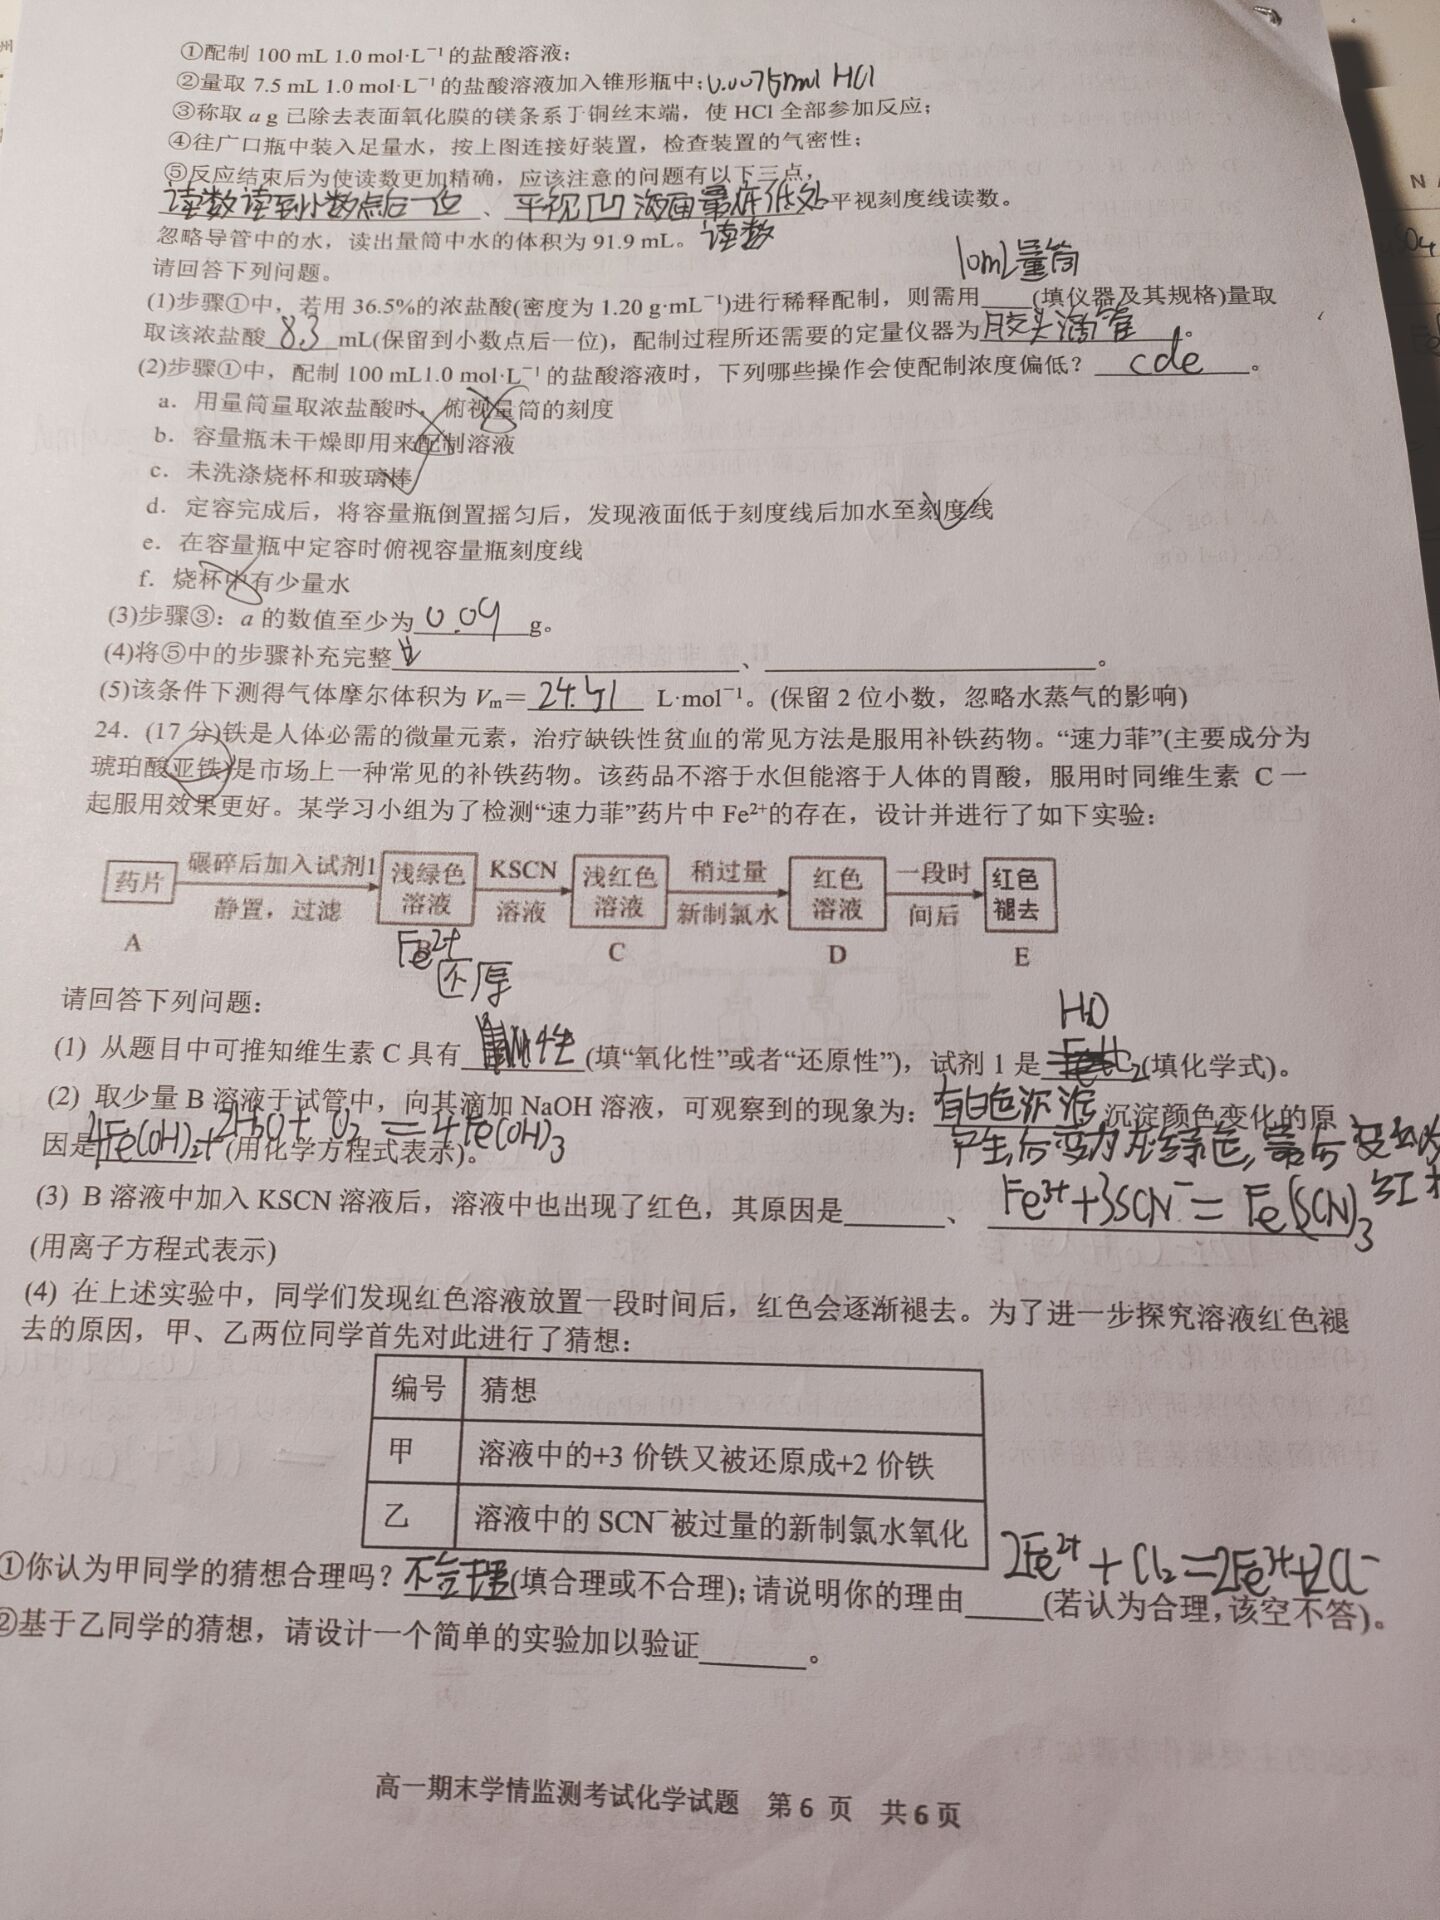 ①配制 100 mL 1.0 mol·L⁻¹的盐酸溶液；
②量取 7.5 mL 1.0 mol·L⁻¹的盐酸溶液加入锥形瓶中；0.0075mol HCl
③称取 a g 已除去表面氧化膜的镁条系于铜丝末端，使 HCl 全部参加反应；
④往广口瓶中装入足量水，按上图连接好装置，检查装置的气密性；
⑤反应结束后为使读数更加精确，应该注意的问题有以下三点，
读数读到小数点后一位、平视凹液面最低处平视刻度线读数。
忽略导管中的水，读出量筒中水的体积为 91.9 mL。读数
请回答下列问题。
10mL量筒
(1)步骤①中，若用 36.5%的浓盐酸(密度为 1.20 g·mL⁻¹)进行稀释配制，则需用___(填仪器及其规格)量取
取该浓盐酸 8.3 mL(保留到小数点后一位)，配制过程所还需要的定量仪器为胶头滴管。
(2)步骤①中，配制 100 mL1.0 mol·L⁻¹的盐酸溶液时，下列哪些操作会使配制浓度偏低？ cde 。
a．用量筒量取浓盐酸时，俯视量筒的刻度
b．容量瓶未干燥即用来配制溶液
c．未洗涤烧杯和玻璃棒
d．定容完成后，将容量瓶倒置摇匀后，发现液面低于刻度线后加水至刻度线
e．在容量瓶中定容时俯视容量瓶刻度线
f．烧杯中有少量水
(3)步骤③：a 的数值至少为 0.09 g。
(4)将⑤中的步骤补充完整______、______。
(5)该条件下测得气体摩尔体积为 Vm＝ 24.51 L·mol⁻¹。(保留 2 位小数，忽略水蒸气的影响)
24．(17 分)铁是人体必需的微量元素，治疗缺铁性贫血的常见方法是服用补铁药物。“速力菲”(主要成分为
琥珀酸亚铁)是市场上一种常见的补铁药物。该药品不溶于水但能溶于人体的胃酸，服用时同维生素 C 一
起服用效果更好。某学习小组为了检测“速力菲”药片中 Fe²⁺的存在，设计并进行了如下实验：
药片 碾碎后加入试剂1 静置，过滤 浅绿色溶液 KSCN 溶液 浅红色溶液 稍过量 新制氯水 红色溶液 一段时间后 红色褪去
A B C D E
Fe²⁺
还原
请回答下列问题：
HCl
(1) 从题目中可推知维生素 C 具有 性(填“氧化性”或者“还原性”)，试剂 1 是___(填化学式)。
(2) 取少量 B 溶液于试管中，向其滴加 NaOH 溶液，可观察到的现象为：有白色沉淀沉淀颜色变化的原
产生,后变为灰绿色,最后变
因是4Fe(OH)₂+2H₂O+O₂=4Fe(OH)₃(用化学方程式表示)。
(3) B 溶液中加入 KSCN 溶液后，溶液中也出现了红色，其原因是______、Fe³⁺+3SCN⁻=Fe(SCN)₃
(用离子方程式表示)
(4) 在上述实验中，同学们发现红色溶液放置一段时间后，红色会逐渐褪去。为了进一步探究溶液红色褪
去的原因，甲、乙两位同学首先对此进行了猜想：
编号 猜想
甲 溶液中的+3 价铁又被还原成+2 价铁
乙 溶液中的 SCN⁻被过量的新制氯水氧化
2Fe²⁺+Cl₂=2Fe³⁺+2Cl⁻
①你认为甲同学的猜想合理吗？不合理(填合理或不合理)；请说明你的理由_____(若认为合理，该空不答)。
②基于乙同学的猜想，请设计一个简单的实验加以验证______。
高一期末学情监测考试化学试题 第 6 页 共 6 页